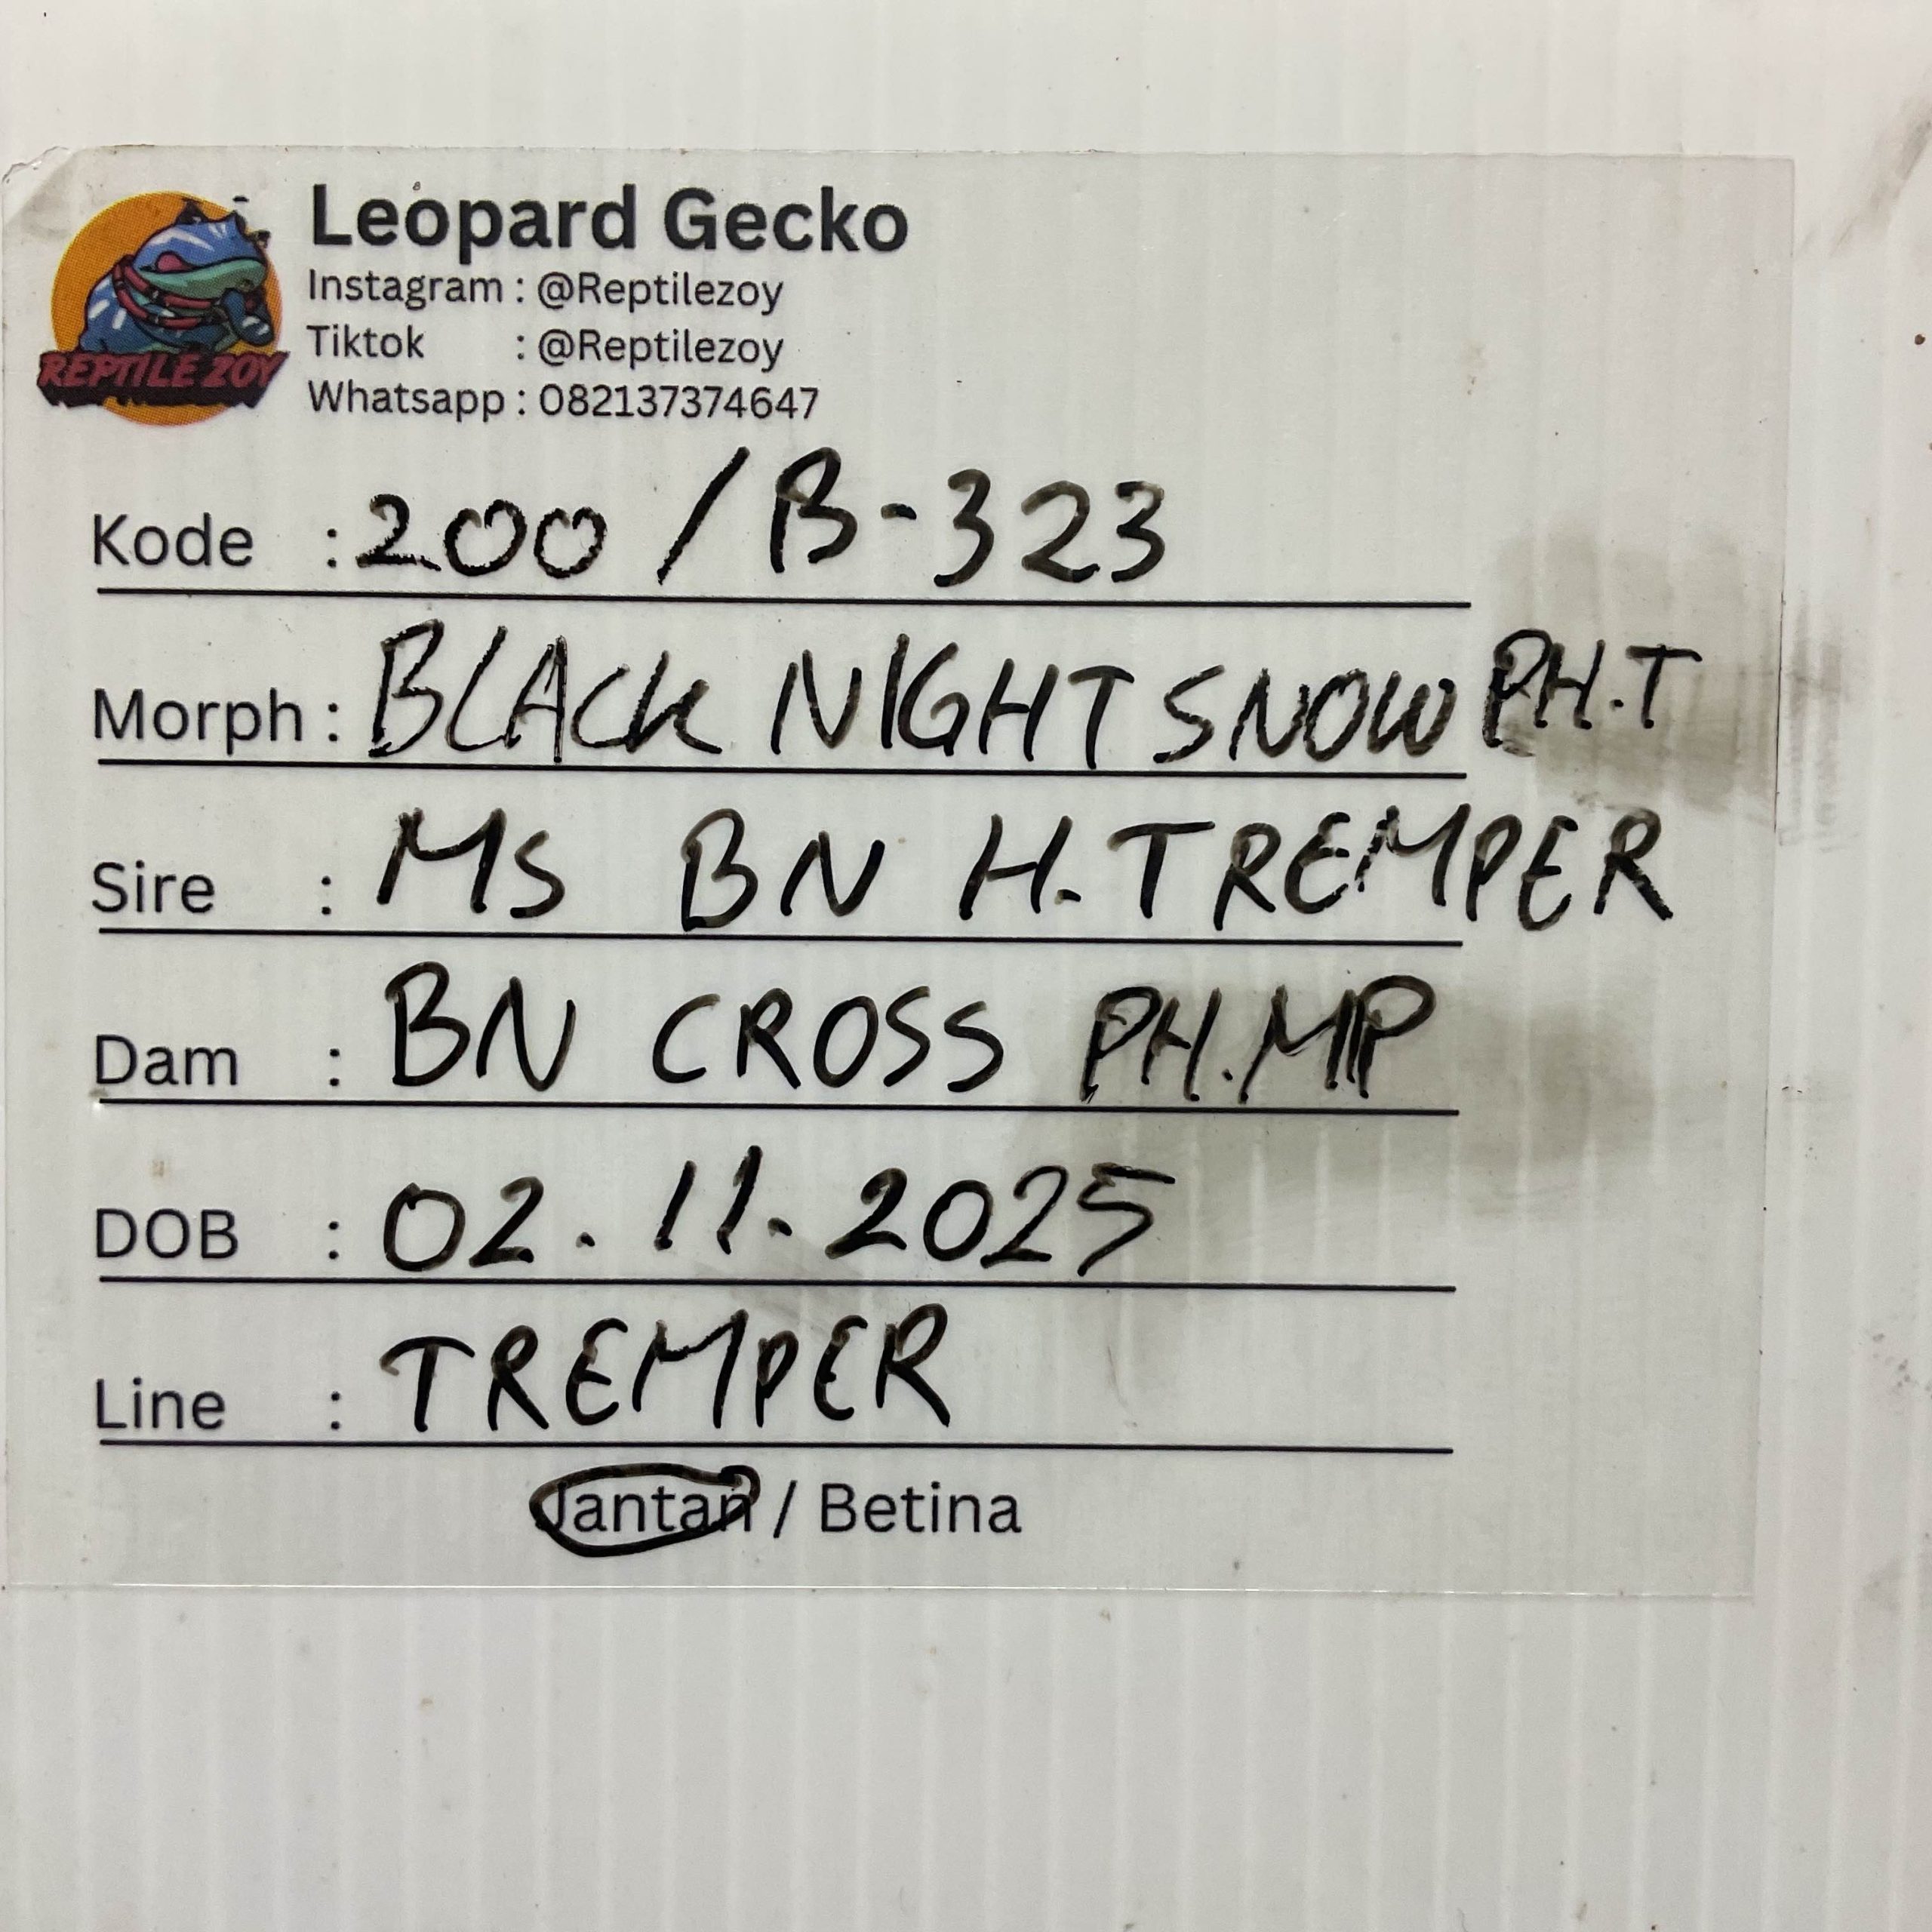 Leopard Gecko
Instagram : @Reptilezoy
Tiktok : @Reptilezoy
Whatsapp : 082137374647
REPTILE ZOY
Kode : 200 / B-323
Morph : BLACK NIGHT SNOW PH.T
Sire : MS BN H.TREMPER
Dam : BN CROSS PH.MP
DOB : 02.11.2025
Line : TREMPER
Jantan / Betina